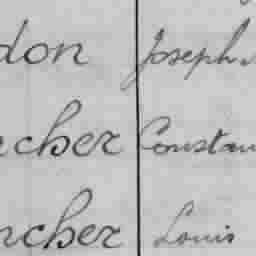 don Joseph
ncher Constan
ncher Louis